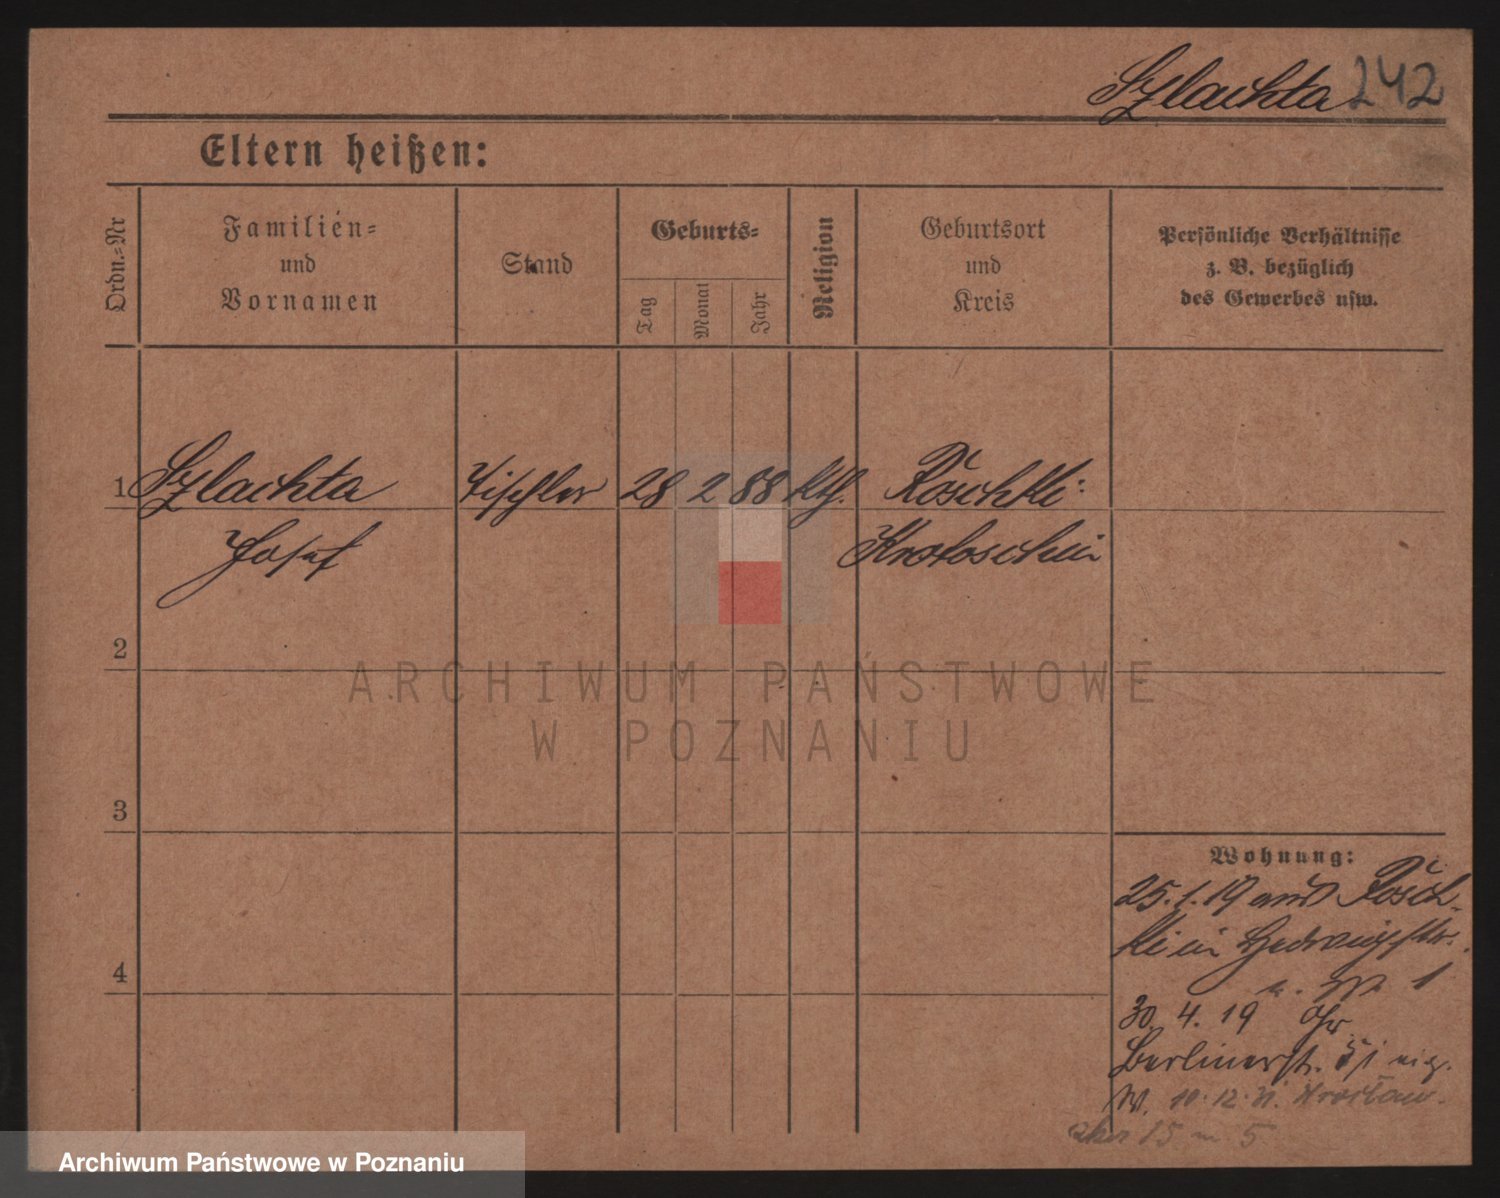 Szlachta 242
Eltern heißen:
Ordn.-Nr
Familien-
und
Vornamen
Stand
Geburts-
Tag
Monat
Jahr
Religion
Geburtsort
und
Kreis
Persönliche Verhältnisse
z. B. bezüglich
des Gewerbes usw.
1 Szlachta Tischler 28 2 88 kth. Roschki:
Josef Krotoschin
2
3
4
Wohnung:
25.1.19 aus Rosch-
ki in Hedwigstr.
1
30.4.19
Berlinerstr. 5
W. 10.12.21. Wrocław-
15 m 5
ARCHIWUM PAŃSTWOWE
W POZNANIU
Archiwum Państwowe w Poznaniu